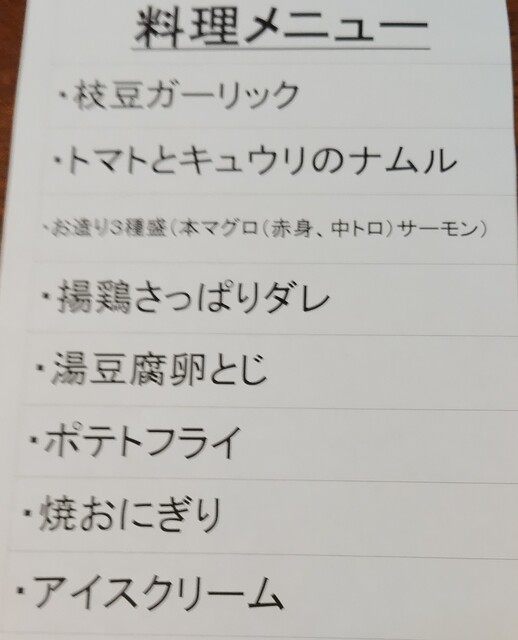 料理メニュー
・枝豆ガーリック
・トマトとキュウリのナムル
・お造り3種盛(本マグロ(赤身、中トロ)サーモン)
・揚鶏さっぱりダレ
・湯豆腐卵とじ
・ポテトフライ
・焼おにぎり
・アイスクリーム